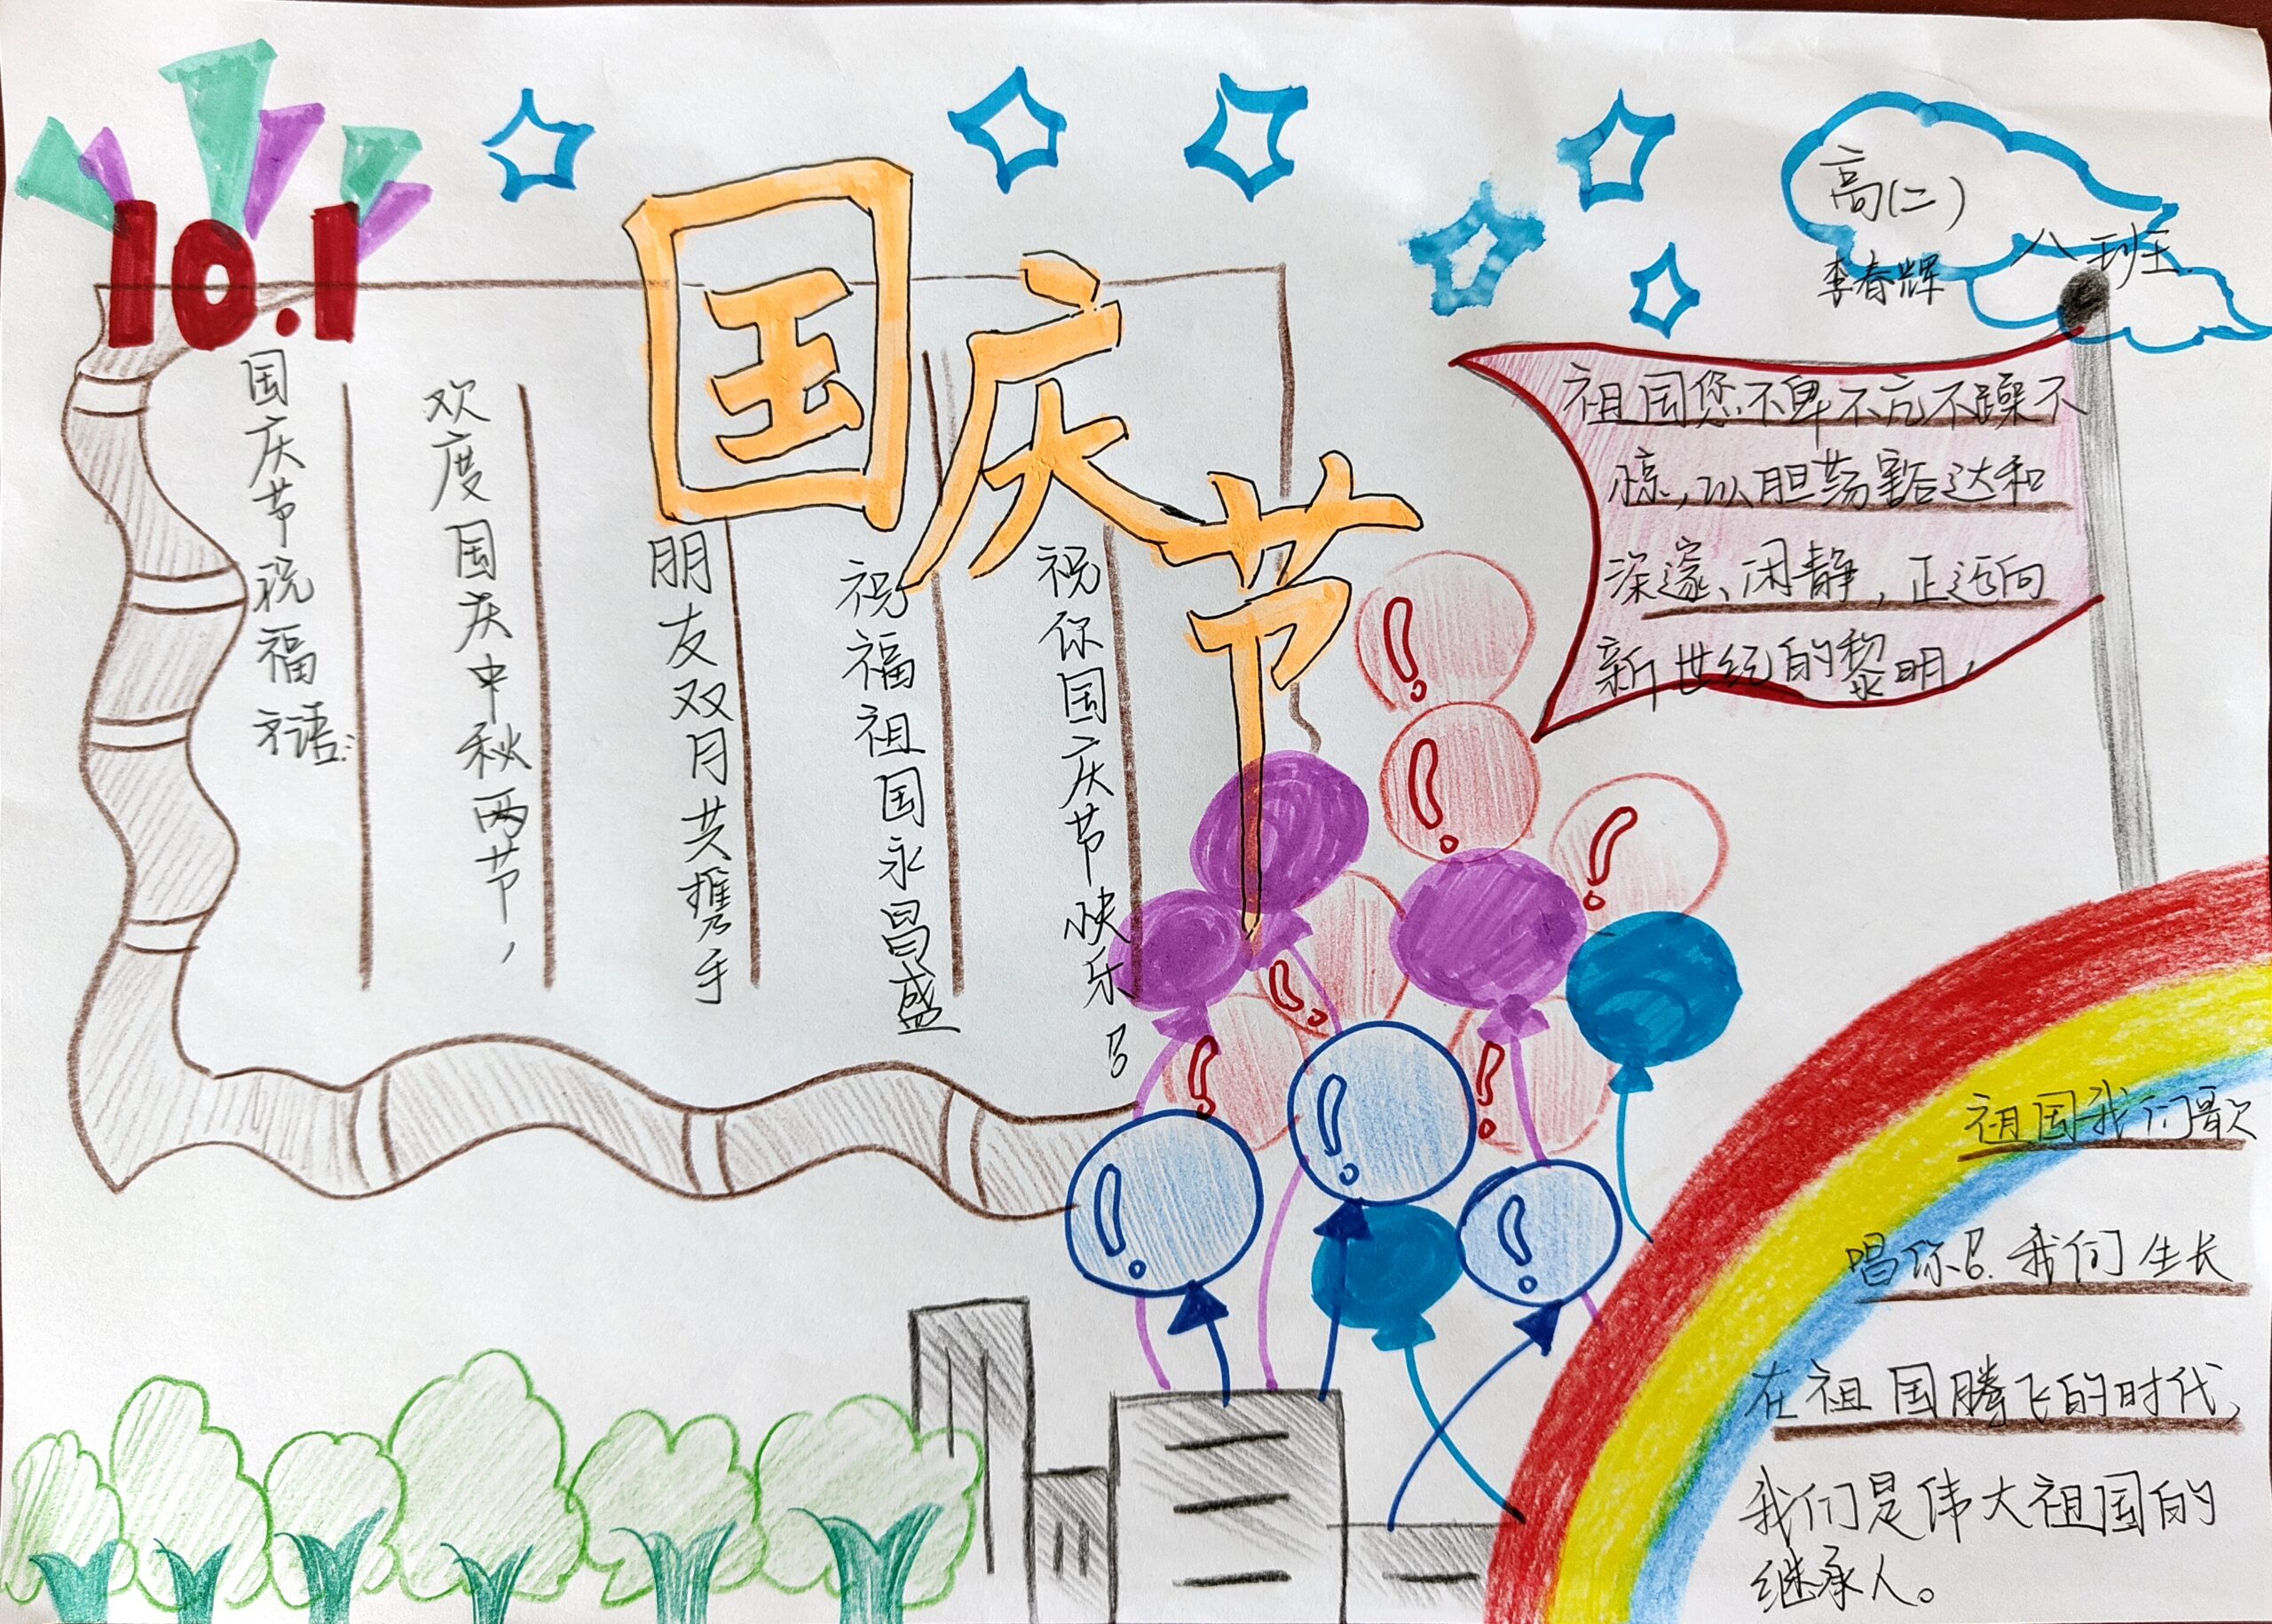 10.1
国庆节
高(二)
八班
李春辉
国庆节祝福语:
欢度国庆中秋两节,
朋友双月共携手
祝福祖国永昌盛
祝你国庆节快乐!
祖国您不卑不亢不躁不
惊,以胆荡豁达和
深邃、闲静,正迈向
新世纪的黎明,
祖国我们歌
唱你!我们生长
在祖国腾飞的时代,
我们是伟大祖国的
继承人。